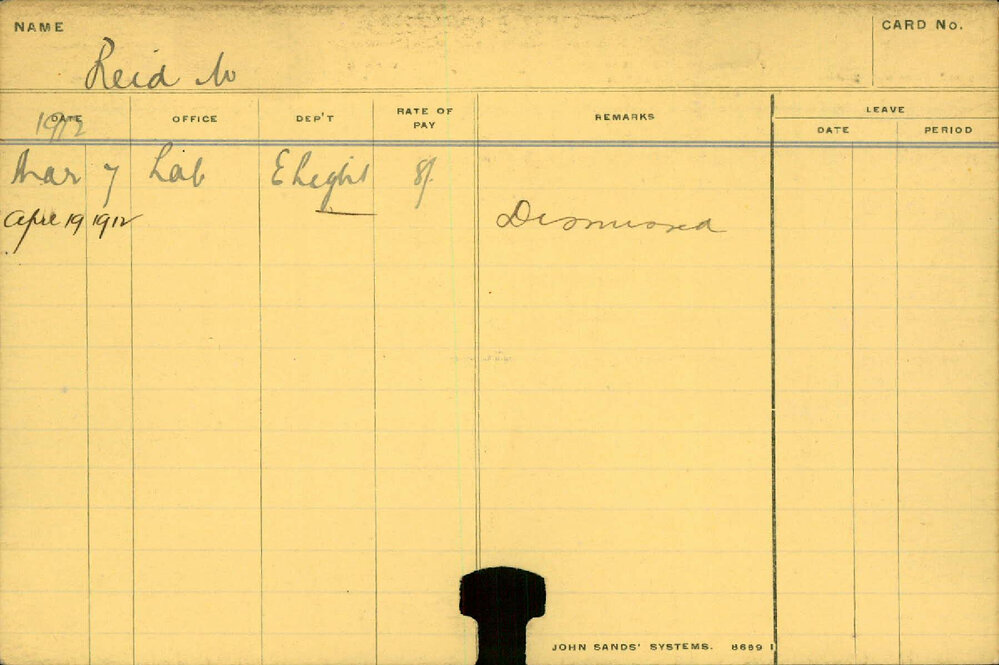 NAME
CARD No.
Reid W
DATE OFFICE DEP'T RATE OF PAY REMARKS LEAVE
DATE PERIOD
1912
Mar 7 Lab E Light 8/.
Apr 19 1912 Dismissed
JOHN SANDS' SYSTEMS. 8669 1